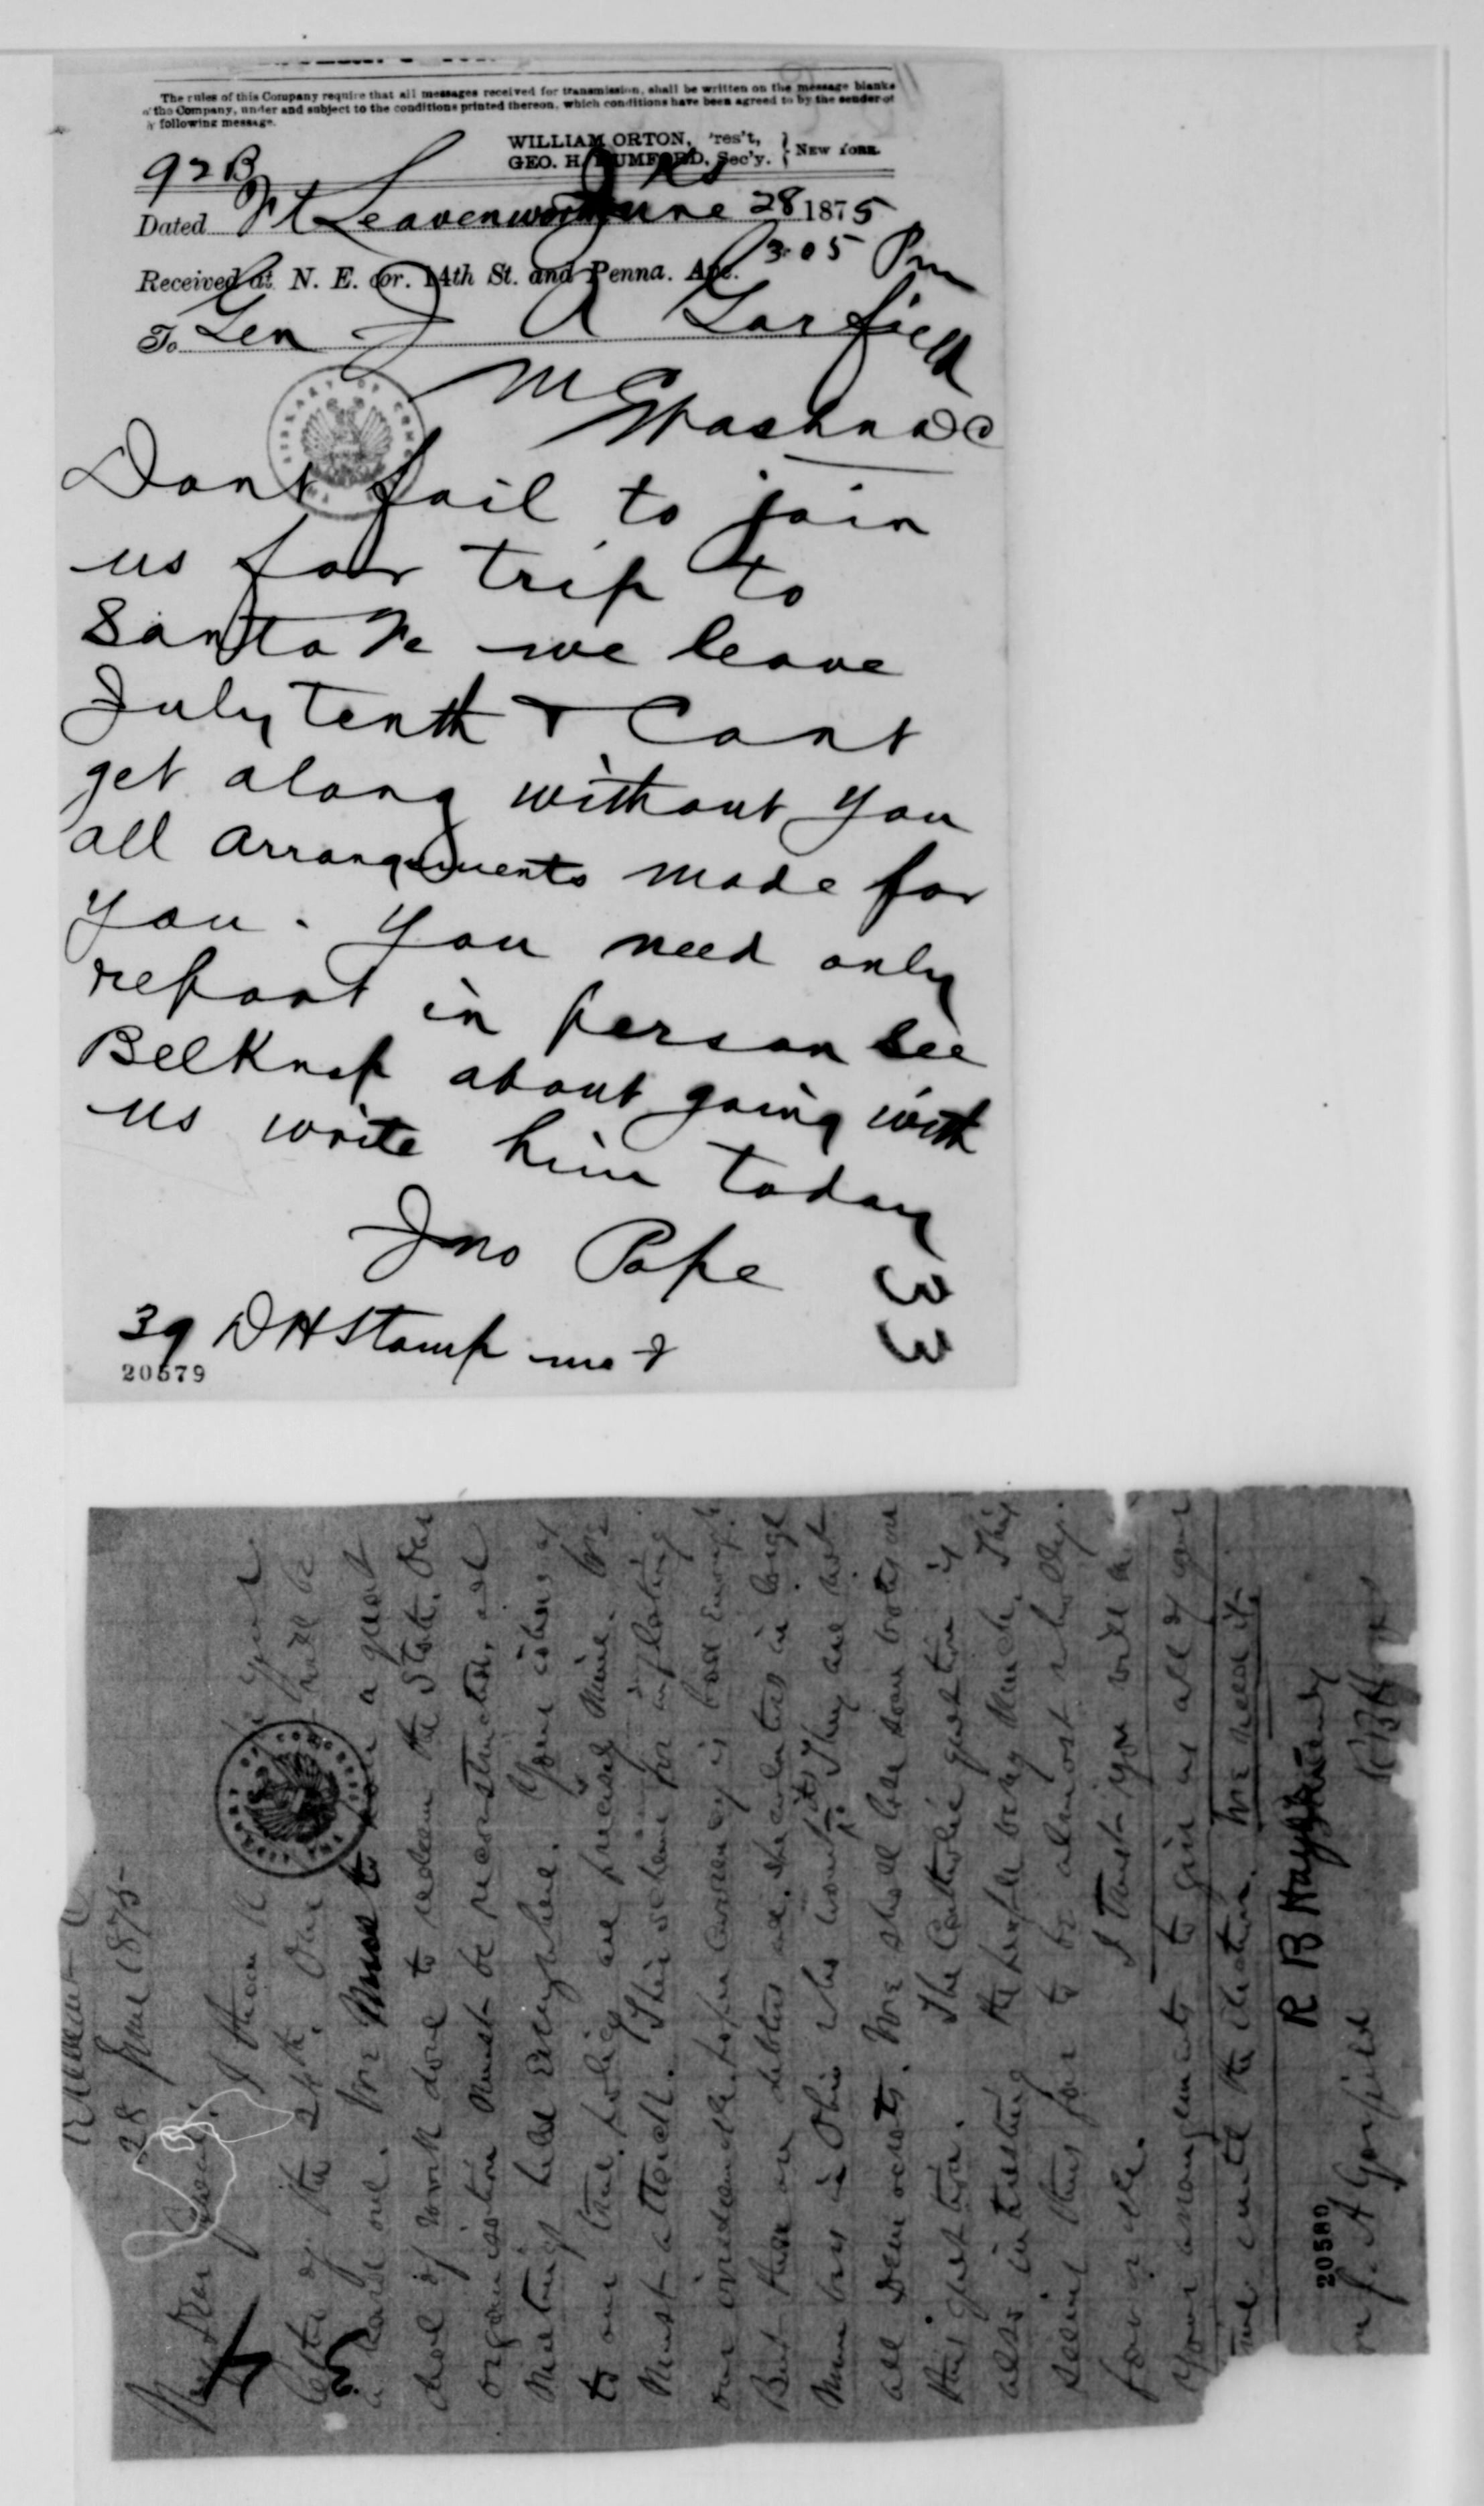 The rules of this Company require that all messages received for transmission, shall be written on the message blanks
of the Company, under and subject to the conditions printed thereon, which conditions have been agreed to by the sender of
following message.
WILLIAM ORTON, Pres't,
GEO. H. MUMFORD, Sec'y. } NEW YORK.
92 B
Ks
Dated Ft Leavenworth June 28 1875
Received at N. E. cor. 14th St. and Penna. Ave. 3:05 Pm
To Gen J A Garfield
M C
Washn DC
Dont fail to join
us for trip to
Santa Fe we leave
July tenth & Cant
get along without you
all arrangements made for
you. You need only
report in person see
Belknap about going with
us write him today
Jno Pope
33
39 DH Stamp
20579
28 June 1875
My Dear General: I thank you for your
letter of the 24th. Our
a hard one. We must do a great
deal of work done to redeem the State. Our
organization must be reconstructed, and
meetings held everywhere. Your ideas as
to our true policy are precisely mine. We
must attack. This scheme for inflating
our irredeemable paper currency is bad enough.
But
men in Ohio who They are not
all Democrats. We shall lose some votes on
this question. The Catholic question is
also interesting the people very much. This
seems thus far to be almost wholly
favorable. I trust you will
your arrangements to give us all of your
time until the election. We need it.
R B Hayes
20580
J. A Garfield